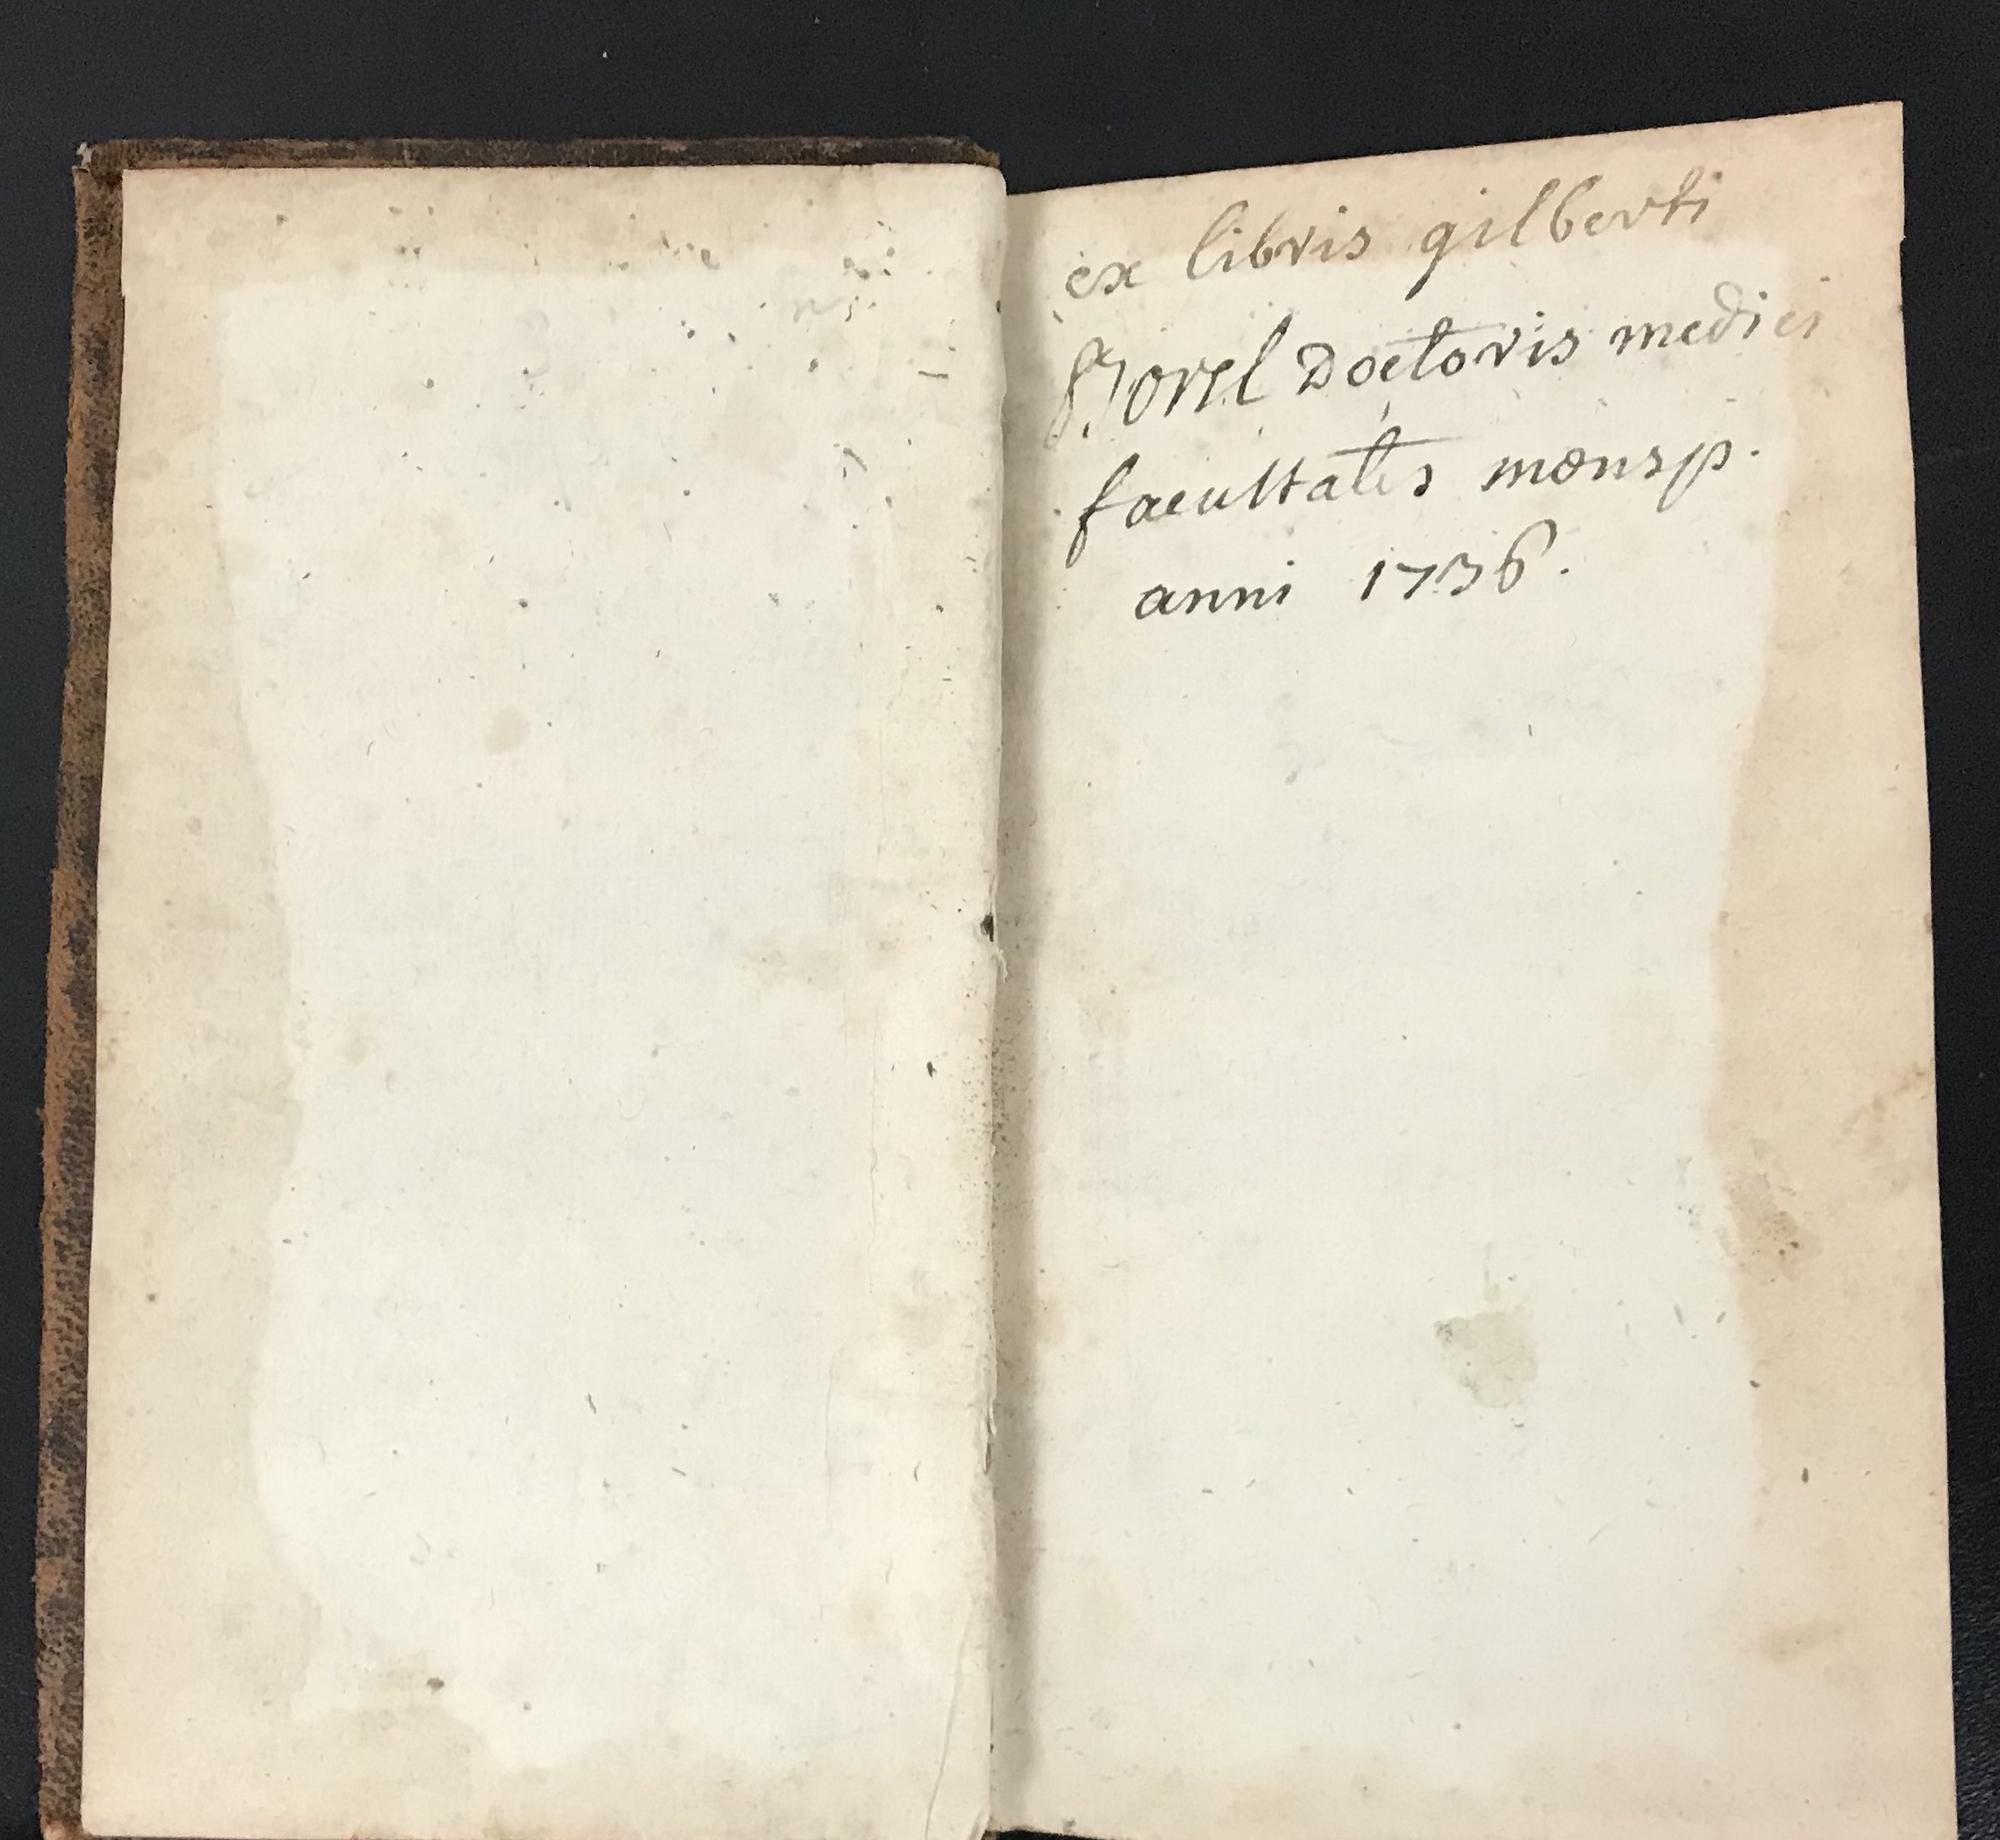 ex libris gilberti
Borel Doctoris medici
facultatis monsp.
anni 1736.